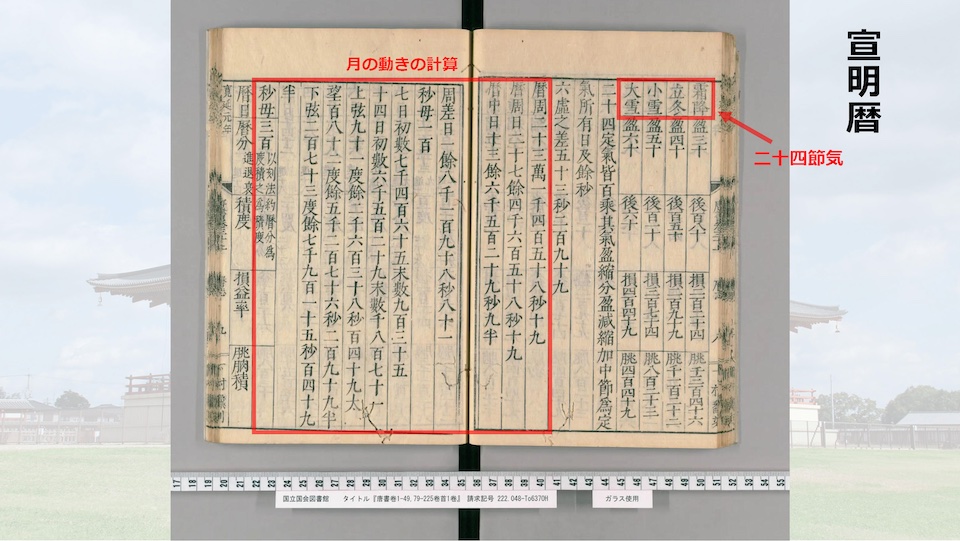 宣明暦
月の動きの計算
二十四節気
霜降盈三十
立冬盈四十
小雪盈五十
大雪盈六十 損四百四十九 朓四百四十九
二十四定氣皆百乘其氣盈縮分盈減縮加中節為定
氣所有日及餘秒
六虛之差五十三秒二百九十九
曆周二十三萬一千四百五十八秒十九
曆周日二十七餘四千六百五十八秒十九
曆中日十三餘六千五百二十九秒九半
周差日一餘八千一百九十八秒八十一
秒母一百
七日初數七千四百六十五末數九百三十五
十四日初數六千五百二十九末數千八百七十一
上弦九十一度餘二千六百三十八秒百四十九太
望百八十二度餘五千二百七十六秒二百九十九半
下弦二百七十三度餘七千九百一十五秒百四十九
半
秒母三百 以刻法約曆分為
度積之為積度
曆日曆分進退衰積度 損益率 朓朒積
寬延元年
17 18 19 20 21 22 23 24 25 26 27 28 29 30 31 32 33 34 35 36 37 38 39 40 41 42 43 44 45 46 47 48 49 50 51 52 53 54 55
国立国会図書館 タイトル『唐書巻1-49,79-225巻首1巻』 請求記号 222.048-To6370H
ガラス使用